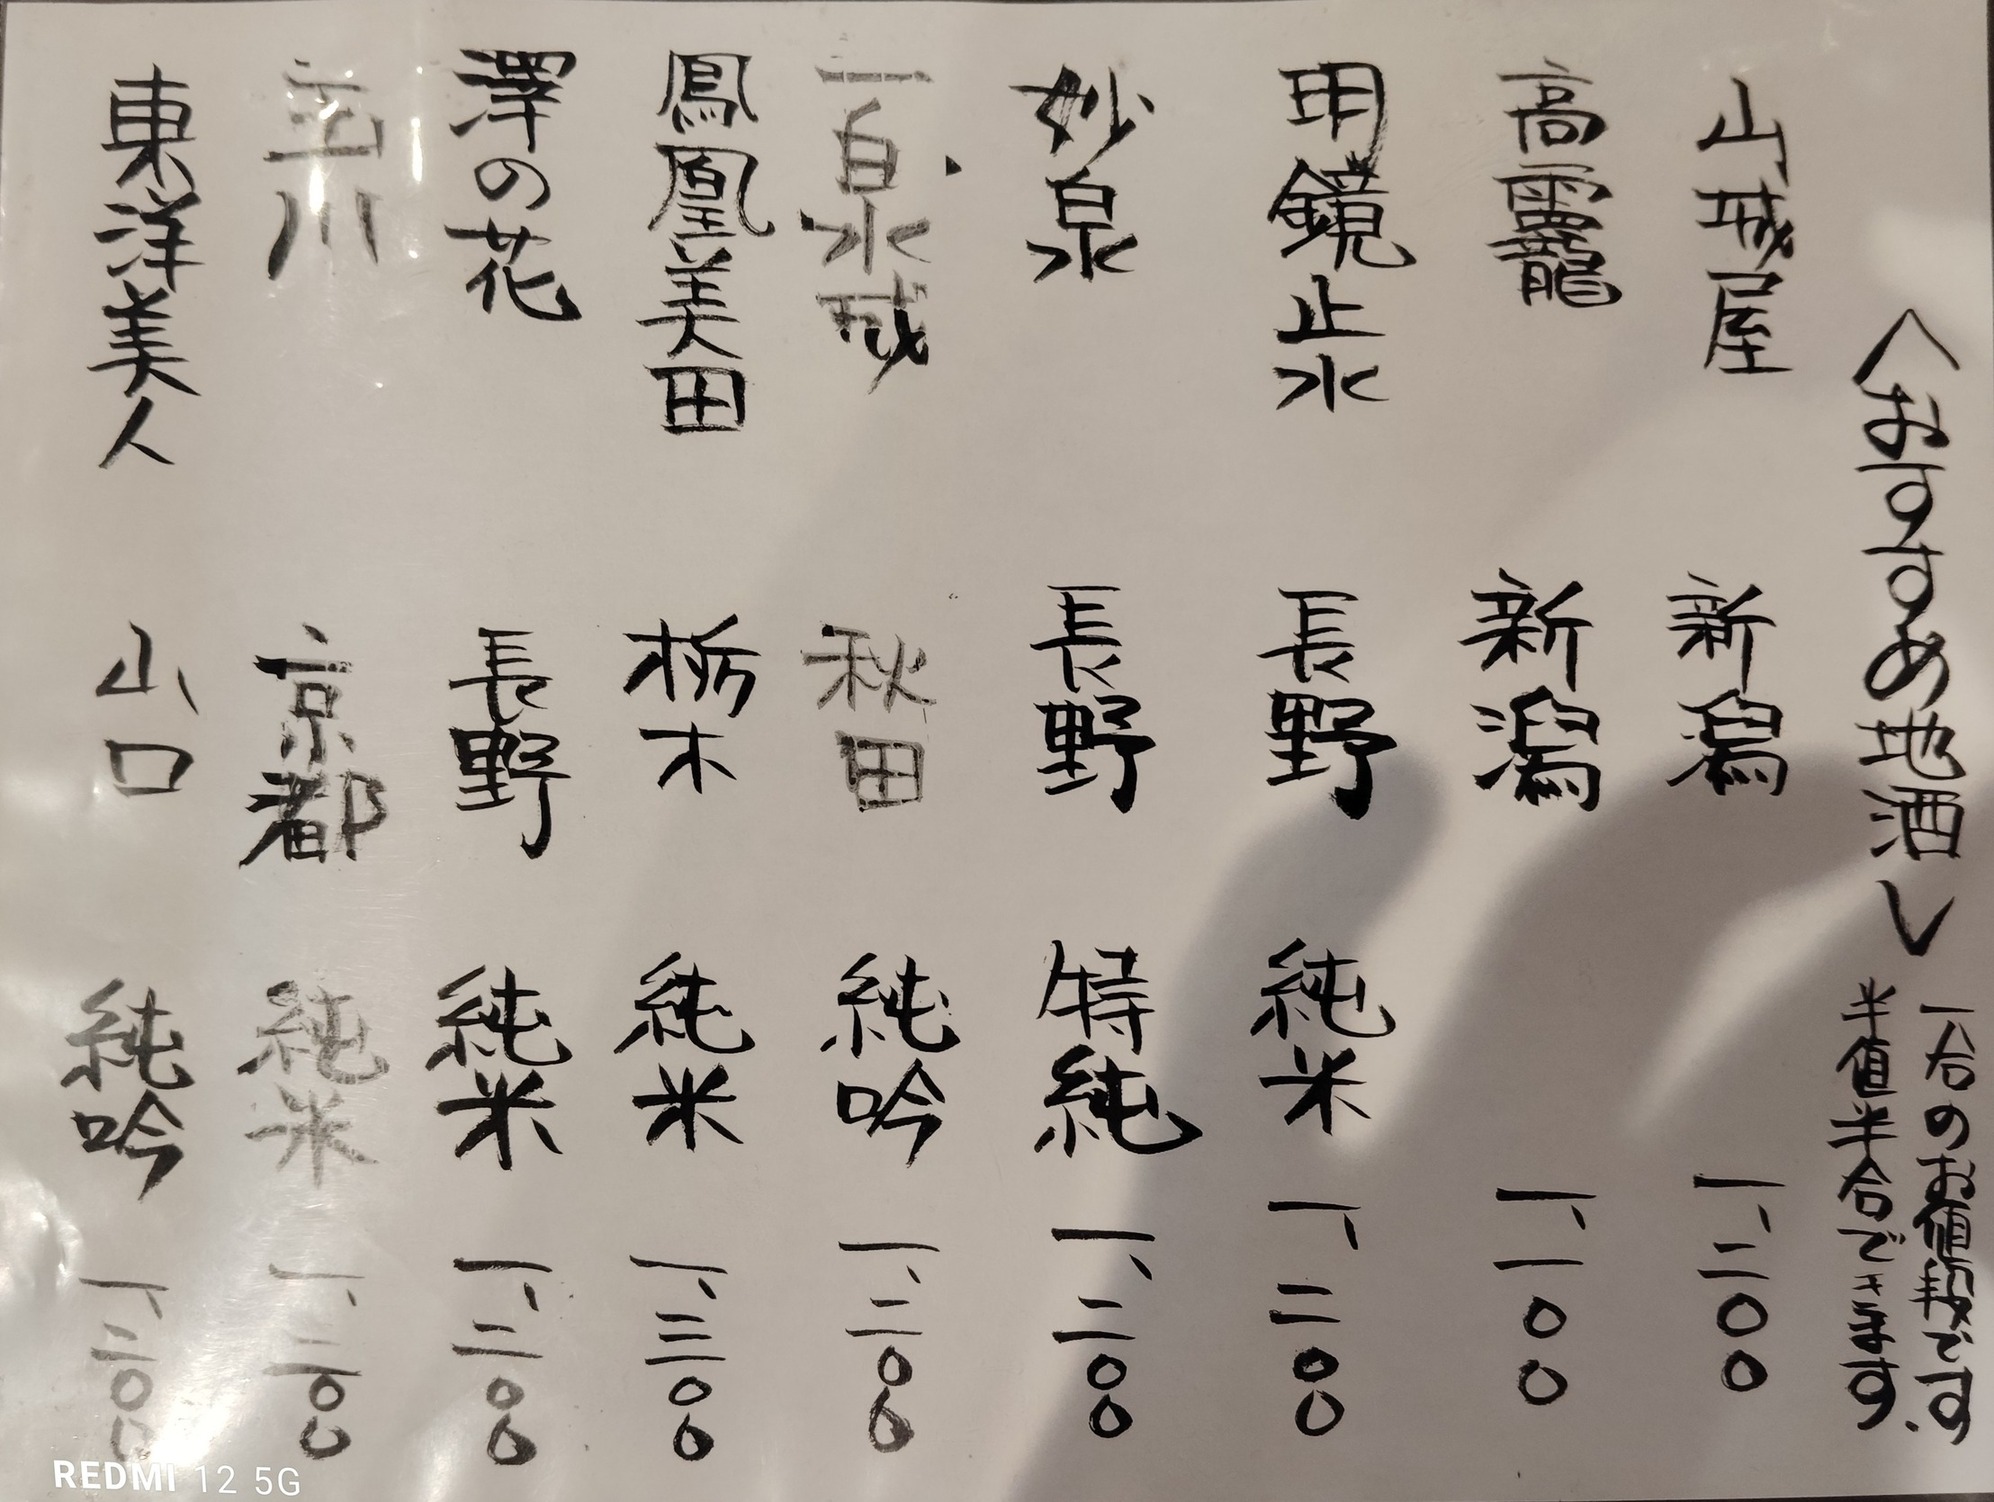 <おすすめ地酒>
一合のお値段です
半値半合できます.
山城屋 新潟 一、二〇〇
高龗 新潟 一、一〇〇
明鏡止水 長野 純米 一、二〇〇
妙泉 長野 特純 一、二〇〇
一白水成 秋田 純吟 一、二〇〇
鳳凰美田 栃木 純米 一、三〇〇
澤の花 長野 純米 一、二〇〇
玉川 京都 純米 一、二〇〇
東洋美人 山口 純吟 一、二〇〇
REDMI 12 5G